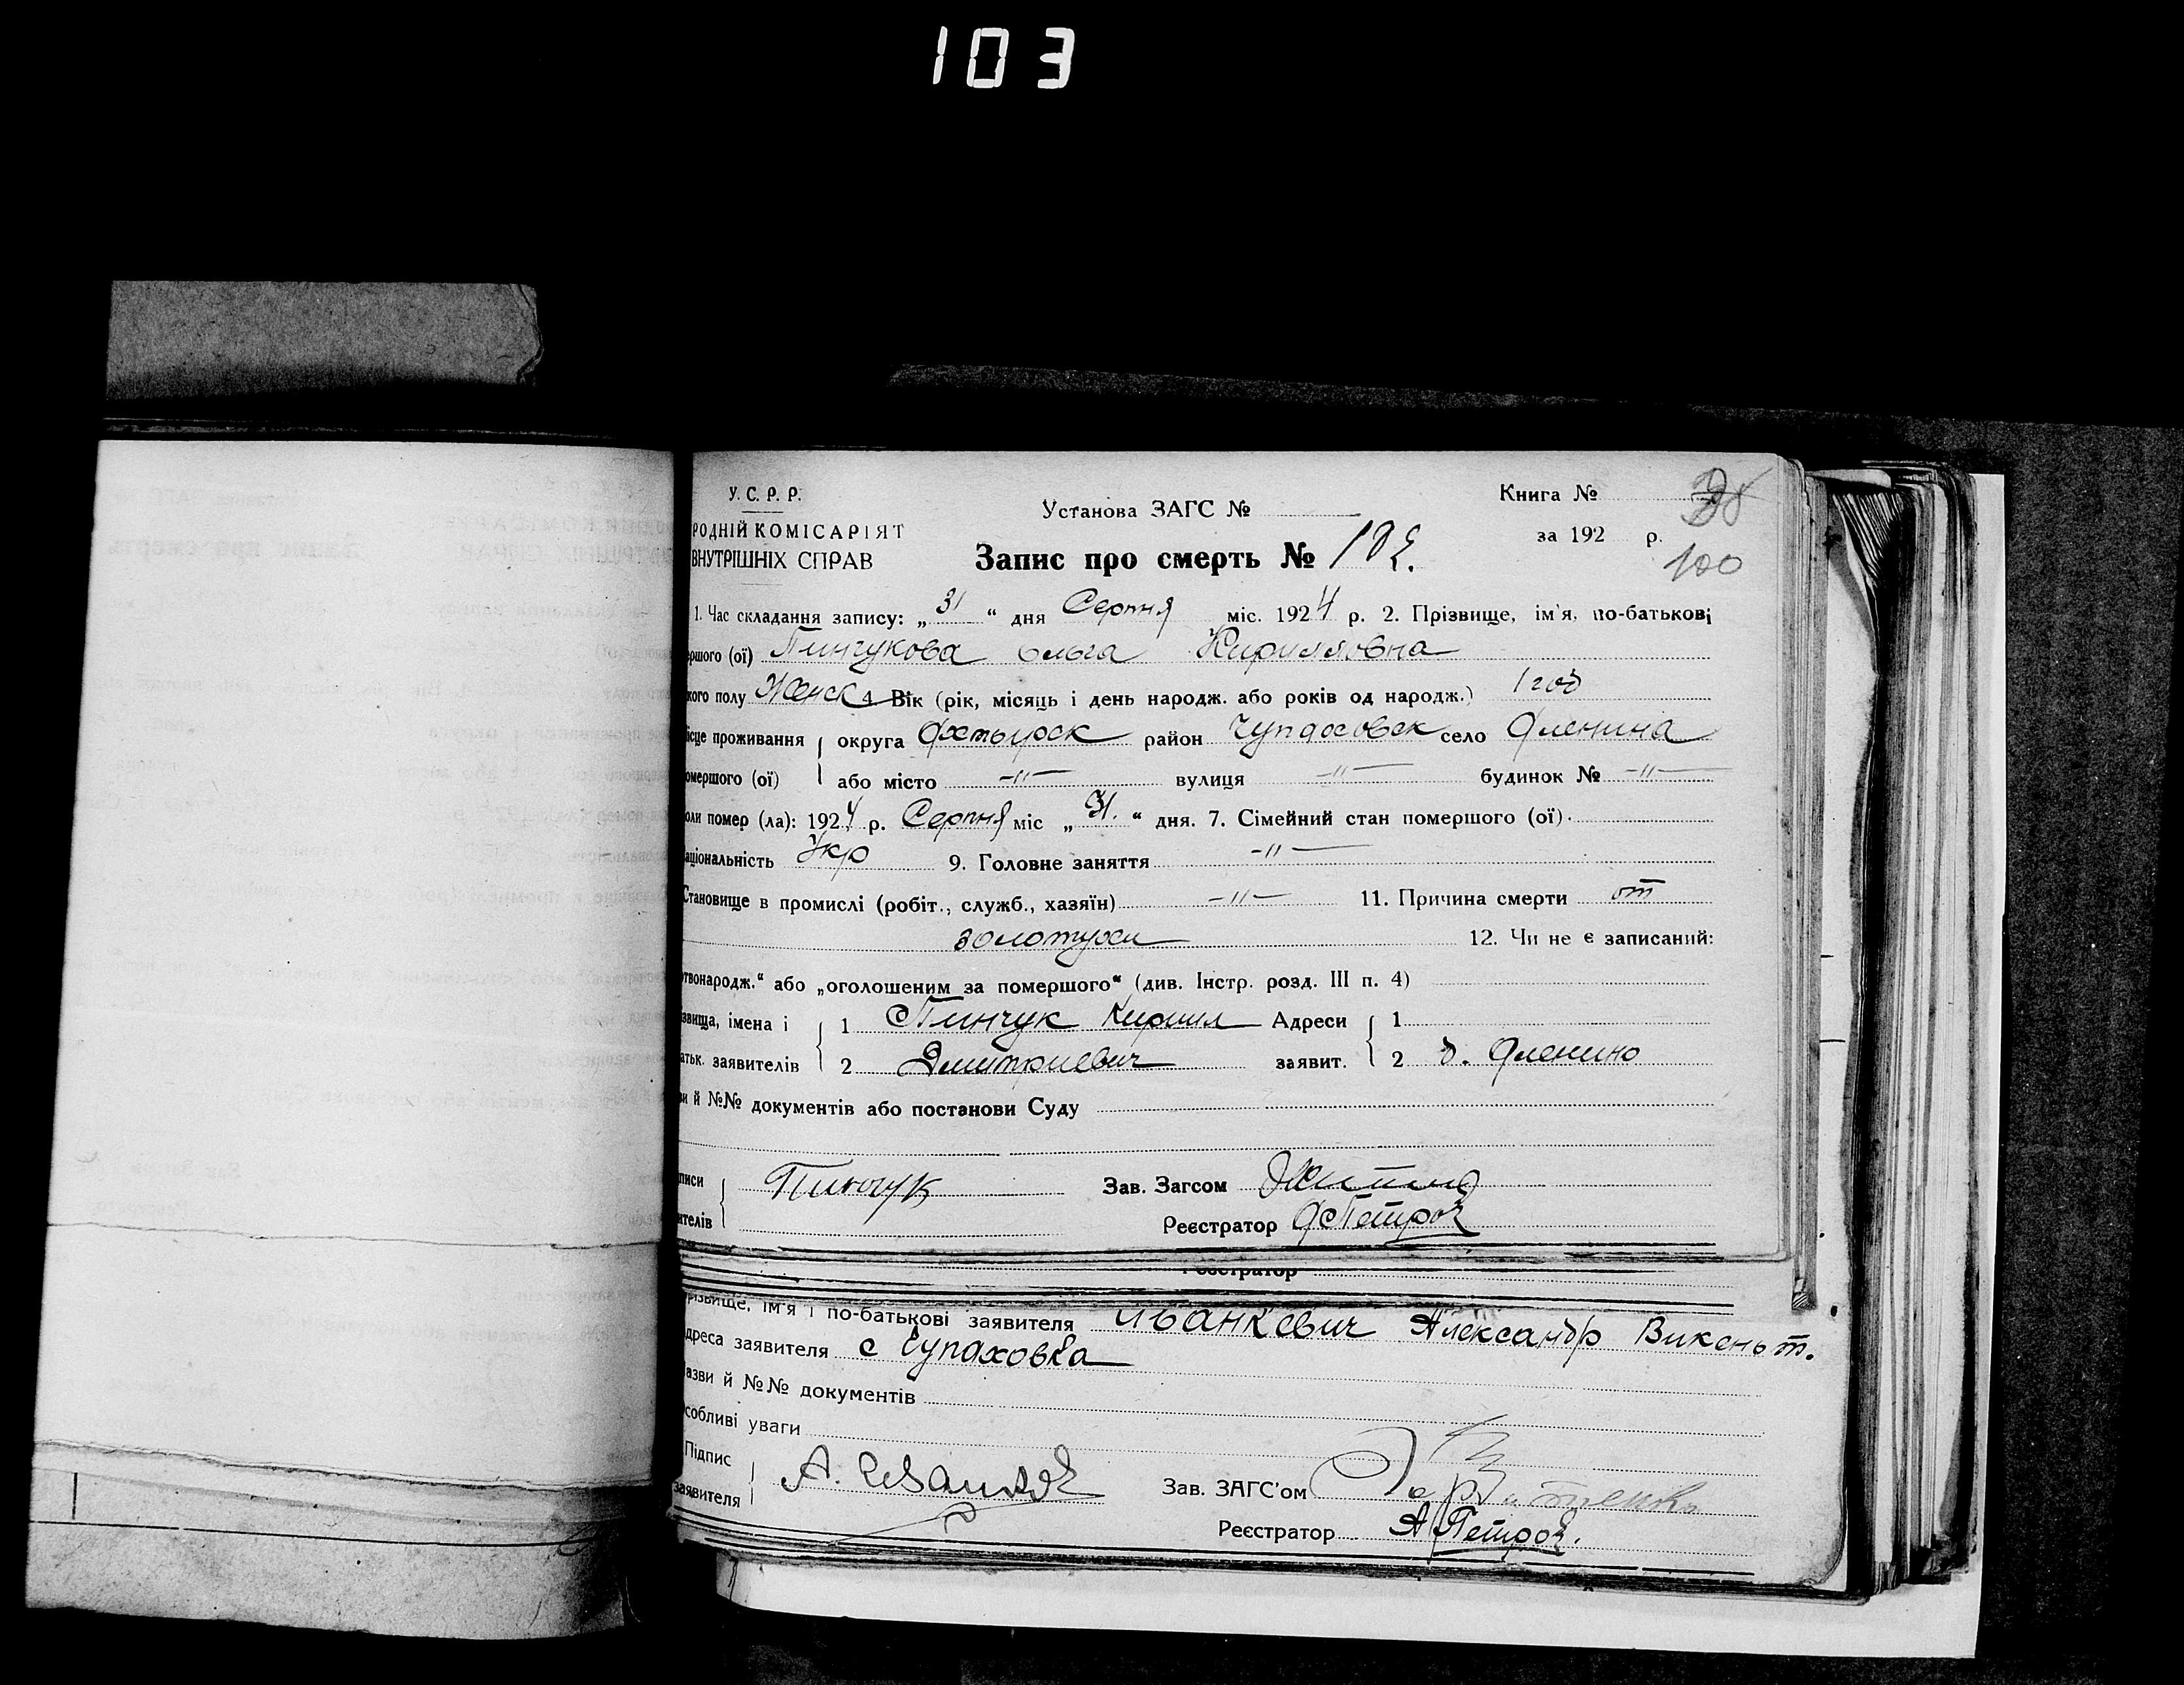 103
У. С. Р. Р.
РОДНІЙ КОМІСАРІЯТ
ВНУТРІШНІХ СПРАВ
Установа ЗАГС №
Книга №
за 192 р.
100
Запис про смерть № 102.
1. Час складання запису: „ 31 “ дня Серпня міс. 1924 р. 2. Прізвище, ім'я, по-батькові
ершого (ої) Пинчукова Ольга Кирилловна
кого полу Женск 4 Вік (рік, місяць і день народж. або років од народж.) 1 год
ісце проживання округа Охтырск район Чупаховск село Оленина
омершого (ої) або місто -"- вулиця -"- будинок № -"-
оли помер (ла): 1924 р. Серпня міс „ 31. “ дня. 7. Сімейний стан помершого (ої).
аціональність Укр 9. Головне заняття -"-
Становище в промислі (робіт., служб., хазяїн) -"- 11. Причина смерти от
золотухи 12. Чи не є записаний:
ртвонародж.“ або „оголошеним за помершого“ (див. Інстр. розд. III п. 4)
звища, імена і 1 Пинчук Кирилл Адреси 1
атьк. заявителів 2 Дмитриевич заявит. 2 д. Оленино
ви й №№ документів або постанови Суду
писи Пинчук Зав. Загсом
ителів Реєстратор Петров
Реєстратор
різвище, ім'я і по-батькові заявителя Иванкевич Александр Викеньт.
дреса заявителя с Чупаховка
азви й №№ документів
собливі уваги
Підпис
заявителя А. Иванкев Зав. ЗАГС'ом
Реєстратор А Петров.